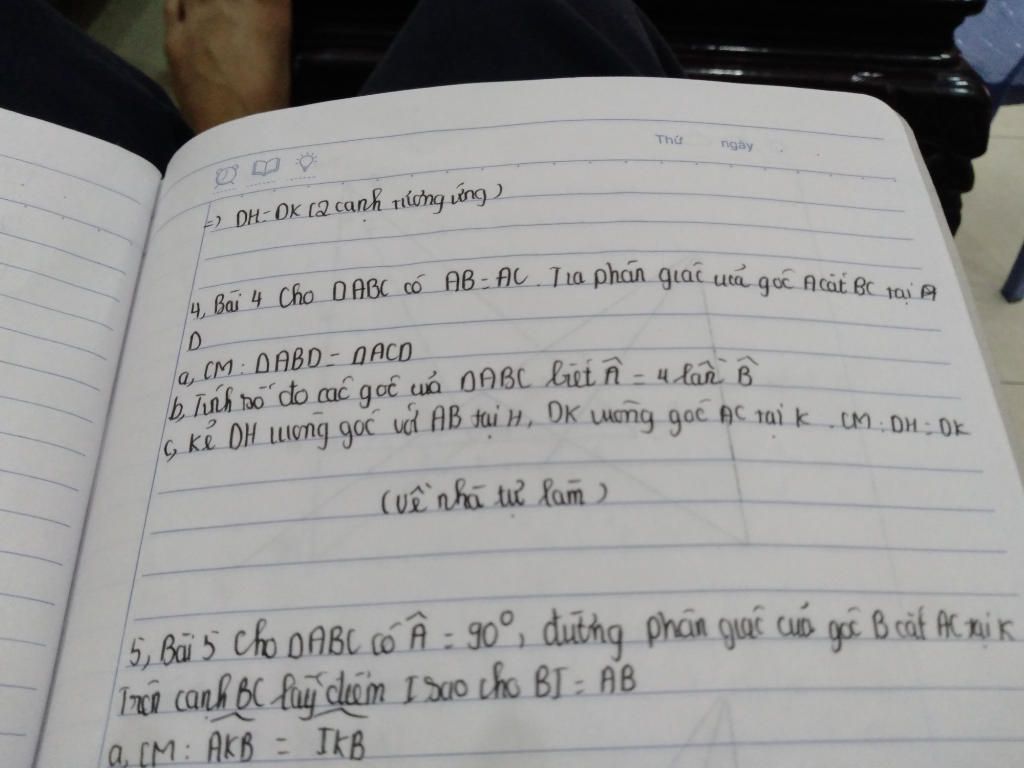 Thứ ngày
=> DH = DK (2 cạnh tương ứng)
4, Bài 4 Cho ΔABC có AB = AC. Tia phân giác của góc A cắt BC tại
D
a, CM: ΔABD = ΔACD
b, Tính số đo các góc của ΔABC biết Â = 4 lần B̂
c, Kẻ DH vuông góc với AB tại H, DK vuông góc AC tại K. CM: DH = DK
(Về nhà tự làm)
5, Bài 5 Cho ΔABC có Â = 90°, đường phân giác của góc B cắt AC tại K
Trên cạnh BC lấy điểm I sao cho BI = AB
a, CM: AKB = IKB